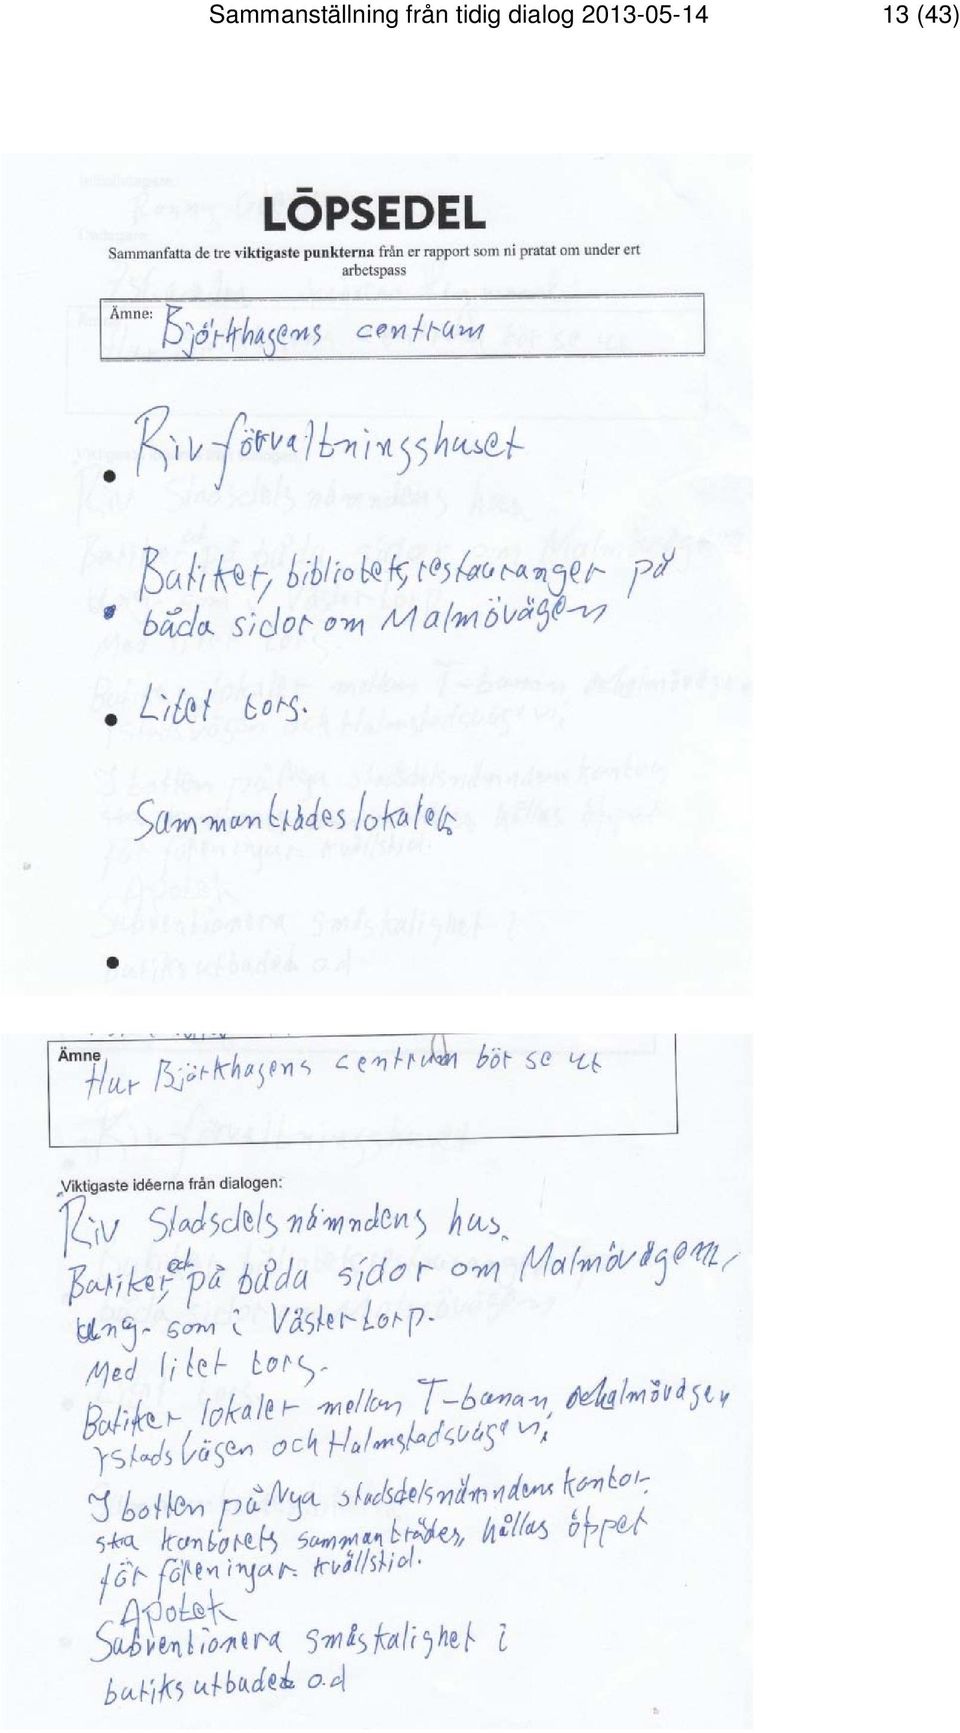 Sammanställning från tidig dialog 2013-05-14 13 (43)
LÖPSEDEL
Sammanfatta de tre viktigaste punkterna från er rapport som ni pratat om under ert
arbetspass
Ämne: Björkhagens centrum
• Riv förvaltningsshuset
Butiker, bibliotek, restauranger på
• båda sidor om Malmövägen
• Litet torg.
Sammanträdeslokaler
•
Ämne
Hur Björkhagens centrum bör se ut
Viktigaste idéerna från dialogen:
Riv Stadsdelsnämndens hus.
Butiker, på båda sidor om Malmövägen,
ung. som i Västertorp.
Med litet torg.
Butiker lokaler mellan T-banan
Ystadsvägen och Halmstadsvägen
I botten på Nya stadsdelsnämndens kontor
ska kontorets sammanträdes, hållas öppet
för föreningar kvällstid.
Apotek
Subventionera småskalighet i
butiksutbudet o.d